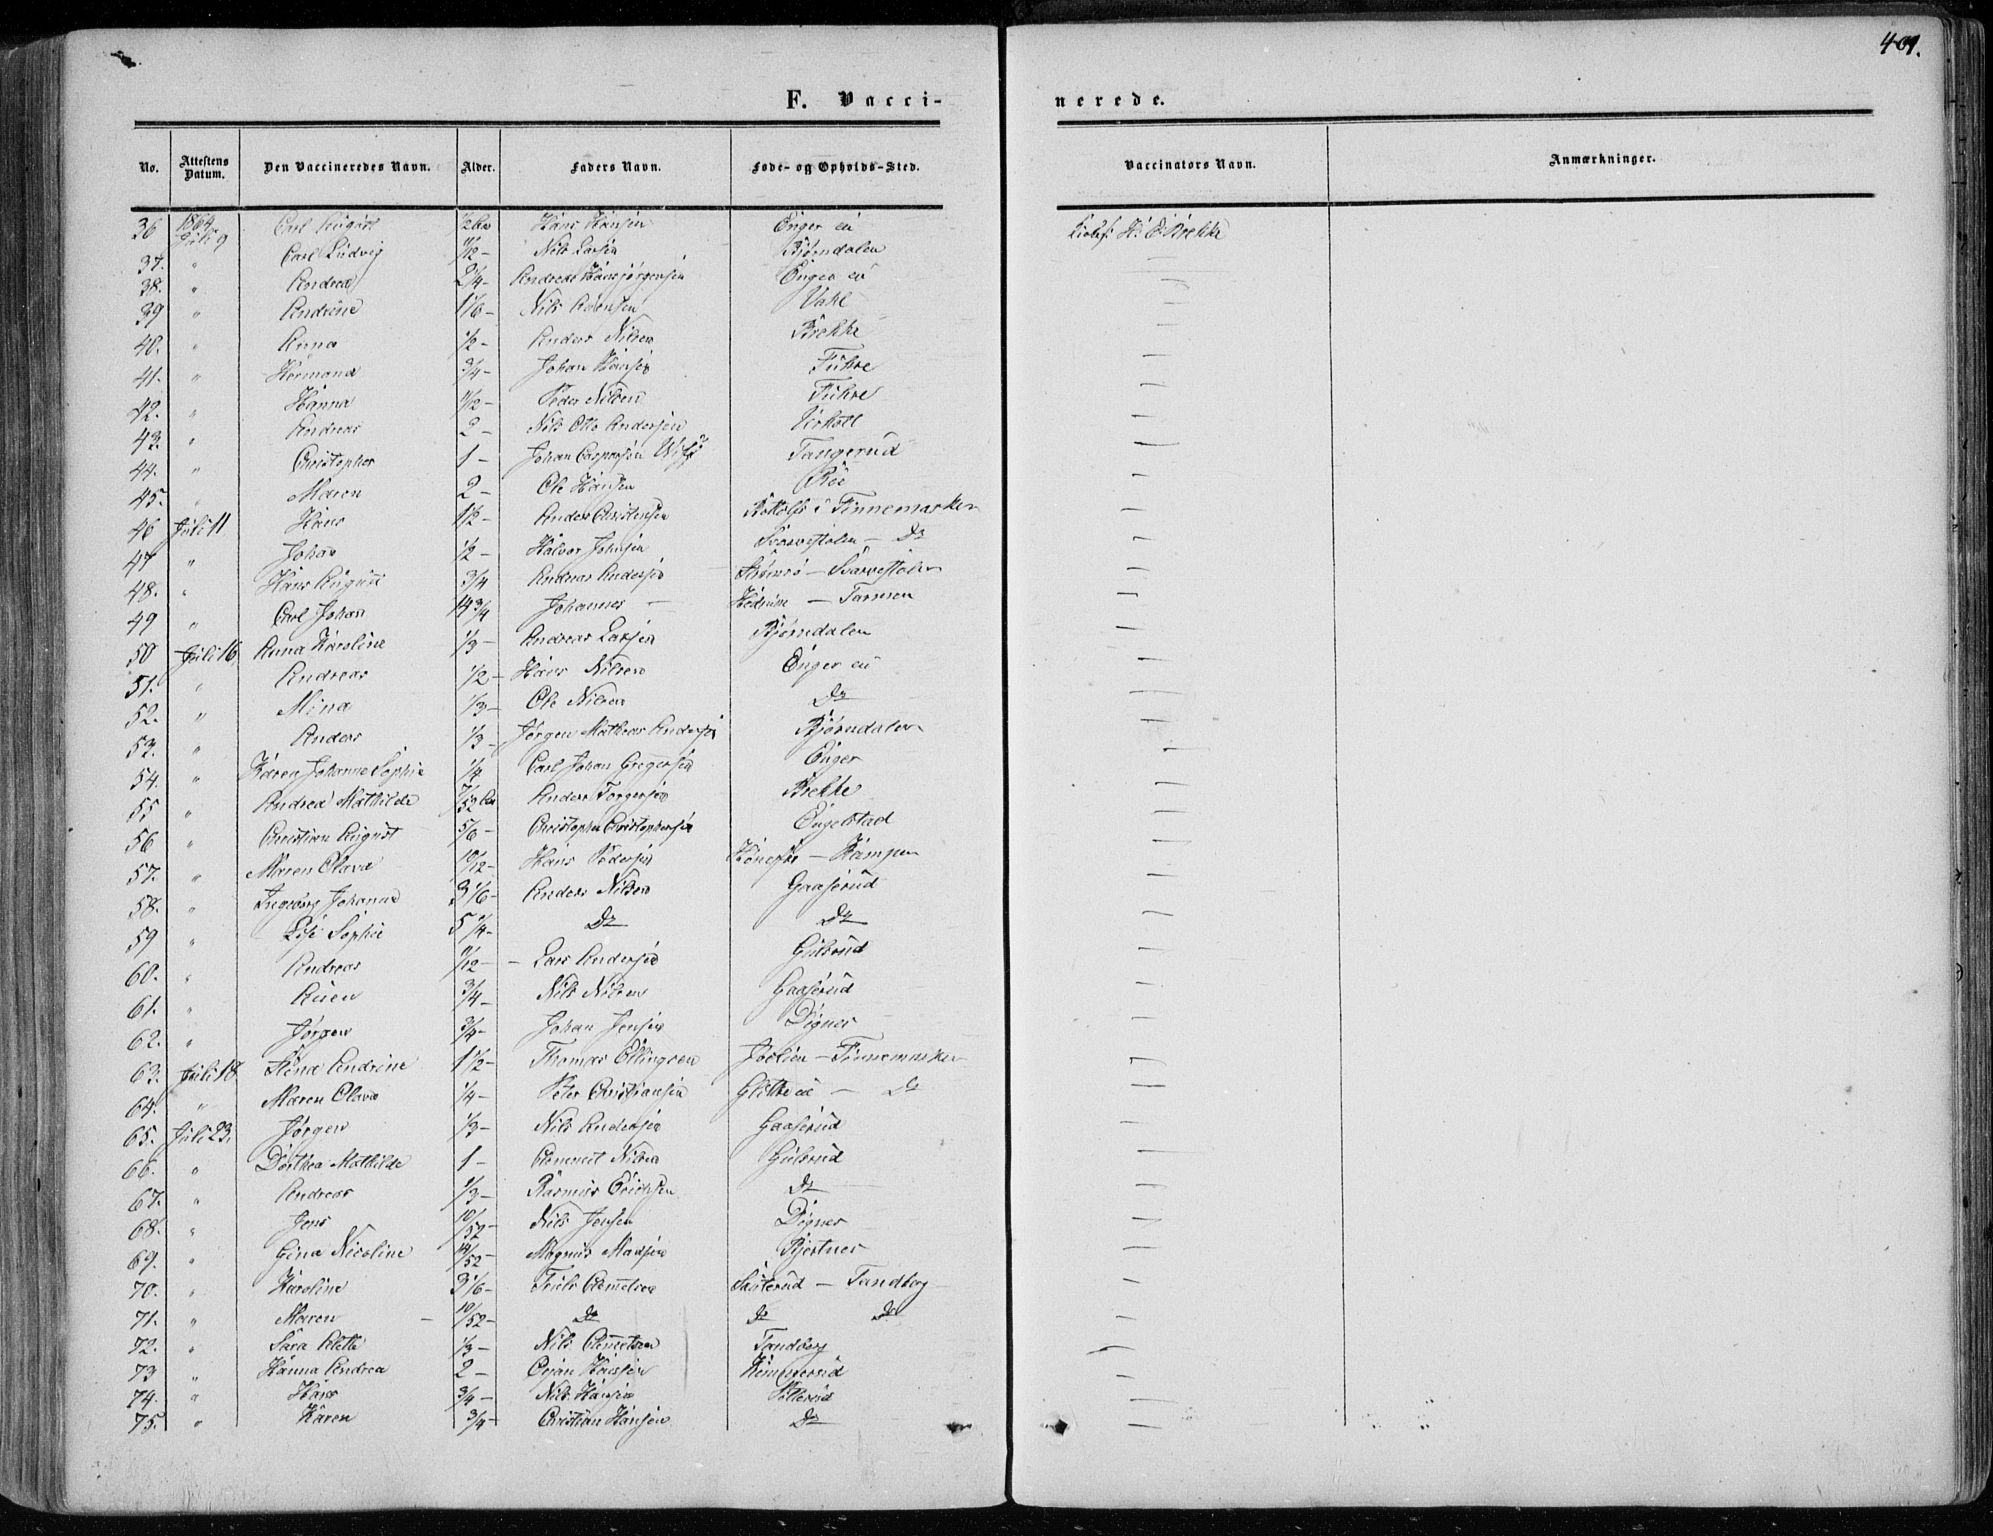 401.
F. Vacci-
nerede.
No. Attestens Datum. Den Vaccineredes Navn. Alder. Faders Navn. Føde- og Opholds-Sted. Vaccinators Navn. Anmærkninger.
36 1864 Juli 9 Carl August Hans Hansen Enger Brekke
37. " Carl Ludvig 1/12 - Nils Larsen Bjørndalen —
38. " Andrea 2/4 - Andreas Hansjørgensen Enger —
39 " Andrine 1 1/6 - Nils Vahl —
40. " Anna 1/2 - Anders Nilsen Brekke —
41. " Hermana 3/4 - Johan Hansen Fuhre —
42. " Hanna 1 1/2 - Peder Nilsen Fuhre —
43. " Andreas 2 - Nils Otto Andersen —
44. " Christopher 1 - Johan Caspersen Tangerud —
45. " Maren 2 - Ole Hansen —
46 Juli 11 Hans 1 1/2 - Anders Christensen i Finnemarken —
47 " Johan 1/2 - Halvor Johnsen Svarvestolen - Do —
48. " Hans August 3/4 Andreas Andersen - Svarvestolen —
49 " Carl Johan 14 3/4 Johannes — —
50 Juli 16 Anna Karoline 1/3 - Andreas Larsen Bjørndalen —
51. " Andreas 1/2 - Hans Nilsen Enger —
52. " Mina 1/3 - Ole Nilsen Do —
53. " Anders 1/3 - Jørgen Mathias Andersen Bjørndalen —
54. " Karen Johanne Sophie 1/4 Carl Johan Gregersen Enger —
55 " Andrea Mathilde 7/52 Anders Torgersen Brekke —
56 " Christian August 5/6 - Christopher Christophersen Engelstad —
57. " Maren Olava 10/12 - Hans Pedersen - Kampen —
58. " Ingeborg Johanne 3 1/6 - Anders Nilsen Gaaserud —
59 " Lise Sophie 5 1/4 - Do Do —
60. " Andreas - Lars Andersen Gulsrud —
61. " 3/4 - Nils Nilsen Gaaserud —
62. " Jørgen 3/4 - Johan Jensen Dignes —
63. Juli 18 Andrine 1 1/2 - Thomas Ellingsen - Finnemarken —
64. " Maren Olava 1/4 - Peter Christiansen - Do —
65. Juli 23. Jørgen 1/3 - Nils Andersen Gaaserud —
66. " Dorthea Mathilde 1 - Clemmet Nilsen Gulsrud —
67. " Andreas 1/3 - Rasmus Erichsen Do —
68. " Jens 10/52 - Nils Jensen Dignes —
69. " Gina Nicoline 14/52 - Magnus Madsen Bjertnes —
70. " Karoline 3 1/6 - Truls Clemetsen - Tandberg —
71. " Maren 10/52 - Do Do Do —
72. " Sara Alette 1/3 - Nils Clemetsen Tandberg —
73 " Hanna Andrea 2 - Ørjan Hansen Kemperud —
74. " Hans 3/4 - Nils Hansen —
75. " Karen 3/4 - Christian Hansen Do —